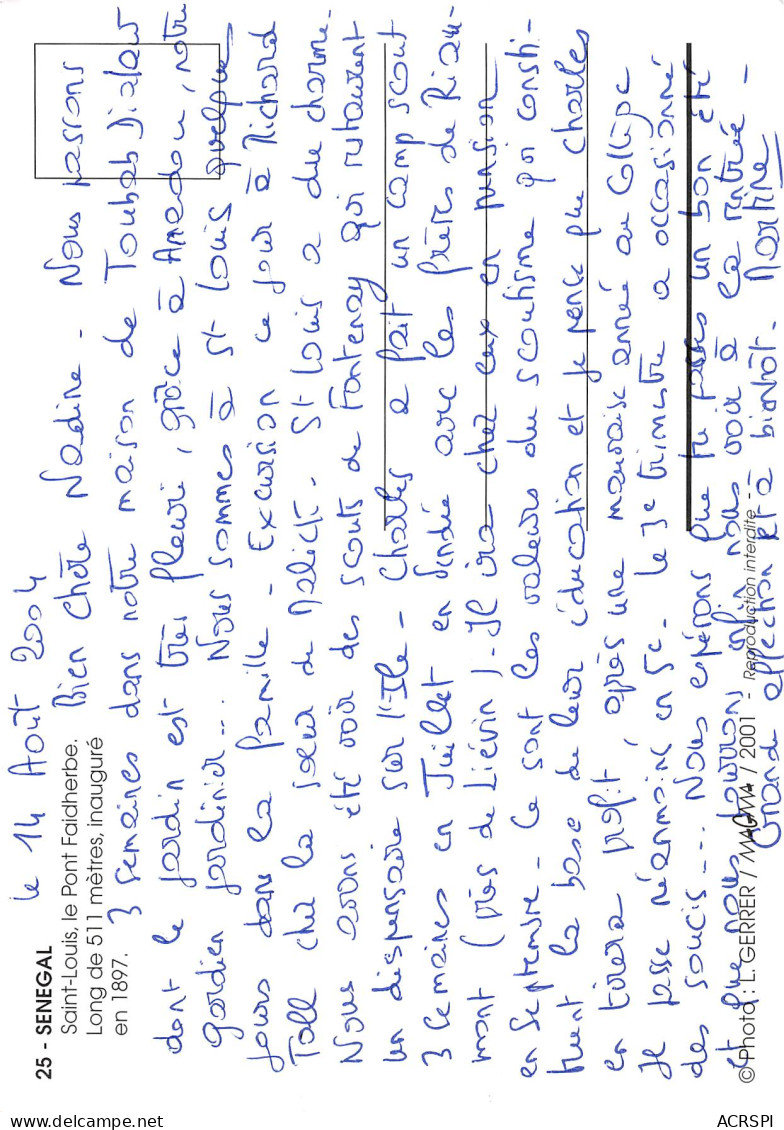 le 14 Août 2004
25 - SENEGAL
Saint-Louis, le Pont Faidherbe.
Long de 511 mètres, inauguré
en 1897.
Bien Chère Nadine - Nous passons
3 semaines dans notre maison de Toubab Dialaw
dont le jardin est très fleuri, grâce à Amadou, notre
gardien jardinier... Nous sommes à St Louis quelques
jours dans la famille - Excursion ce jour à Richard
Toll chez la soeur de Malick. St Louis a du charme.
Nous avons été voir des scouts de Fontenay qui restaurent
un dispensaire sur l'Ile - Charles a fait un camp scout
3 semaines en Juillet en Vendée avec les frères de Riau-
mont (près de Liévin) - Il ira chez eux en pension
en septembre - Ce sont les valeurs du scoutisme qui consti-
tuent la base de leur éducation et je pense que Charles
en tirera profit, après une mauvaise année au Collège
Il passe néanmoins en 5e. Le 3e trimestre a occasionné
des soucis... Nous espérons que tu passes un bon été
et que nous pourrons enfin nous voir à la rentrée -
Grande affection et à bientôt. Martine
© Photo : L. GERRER / MAGMA / 2001 - Reproduction interdite -
ACRSPI